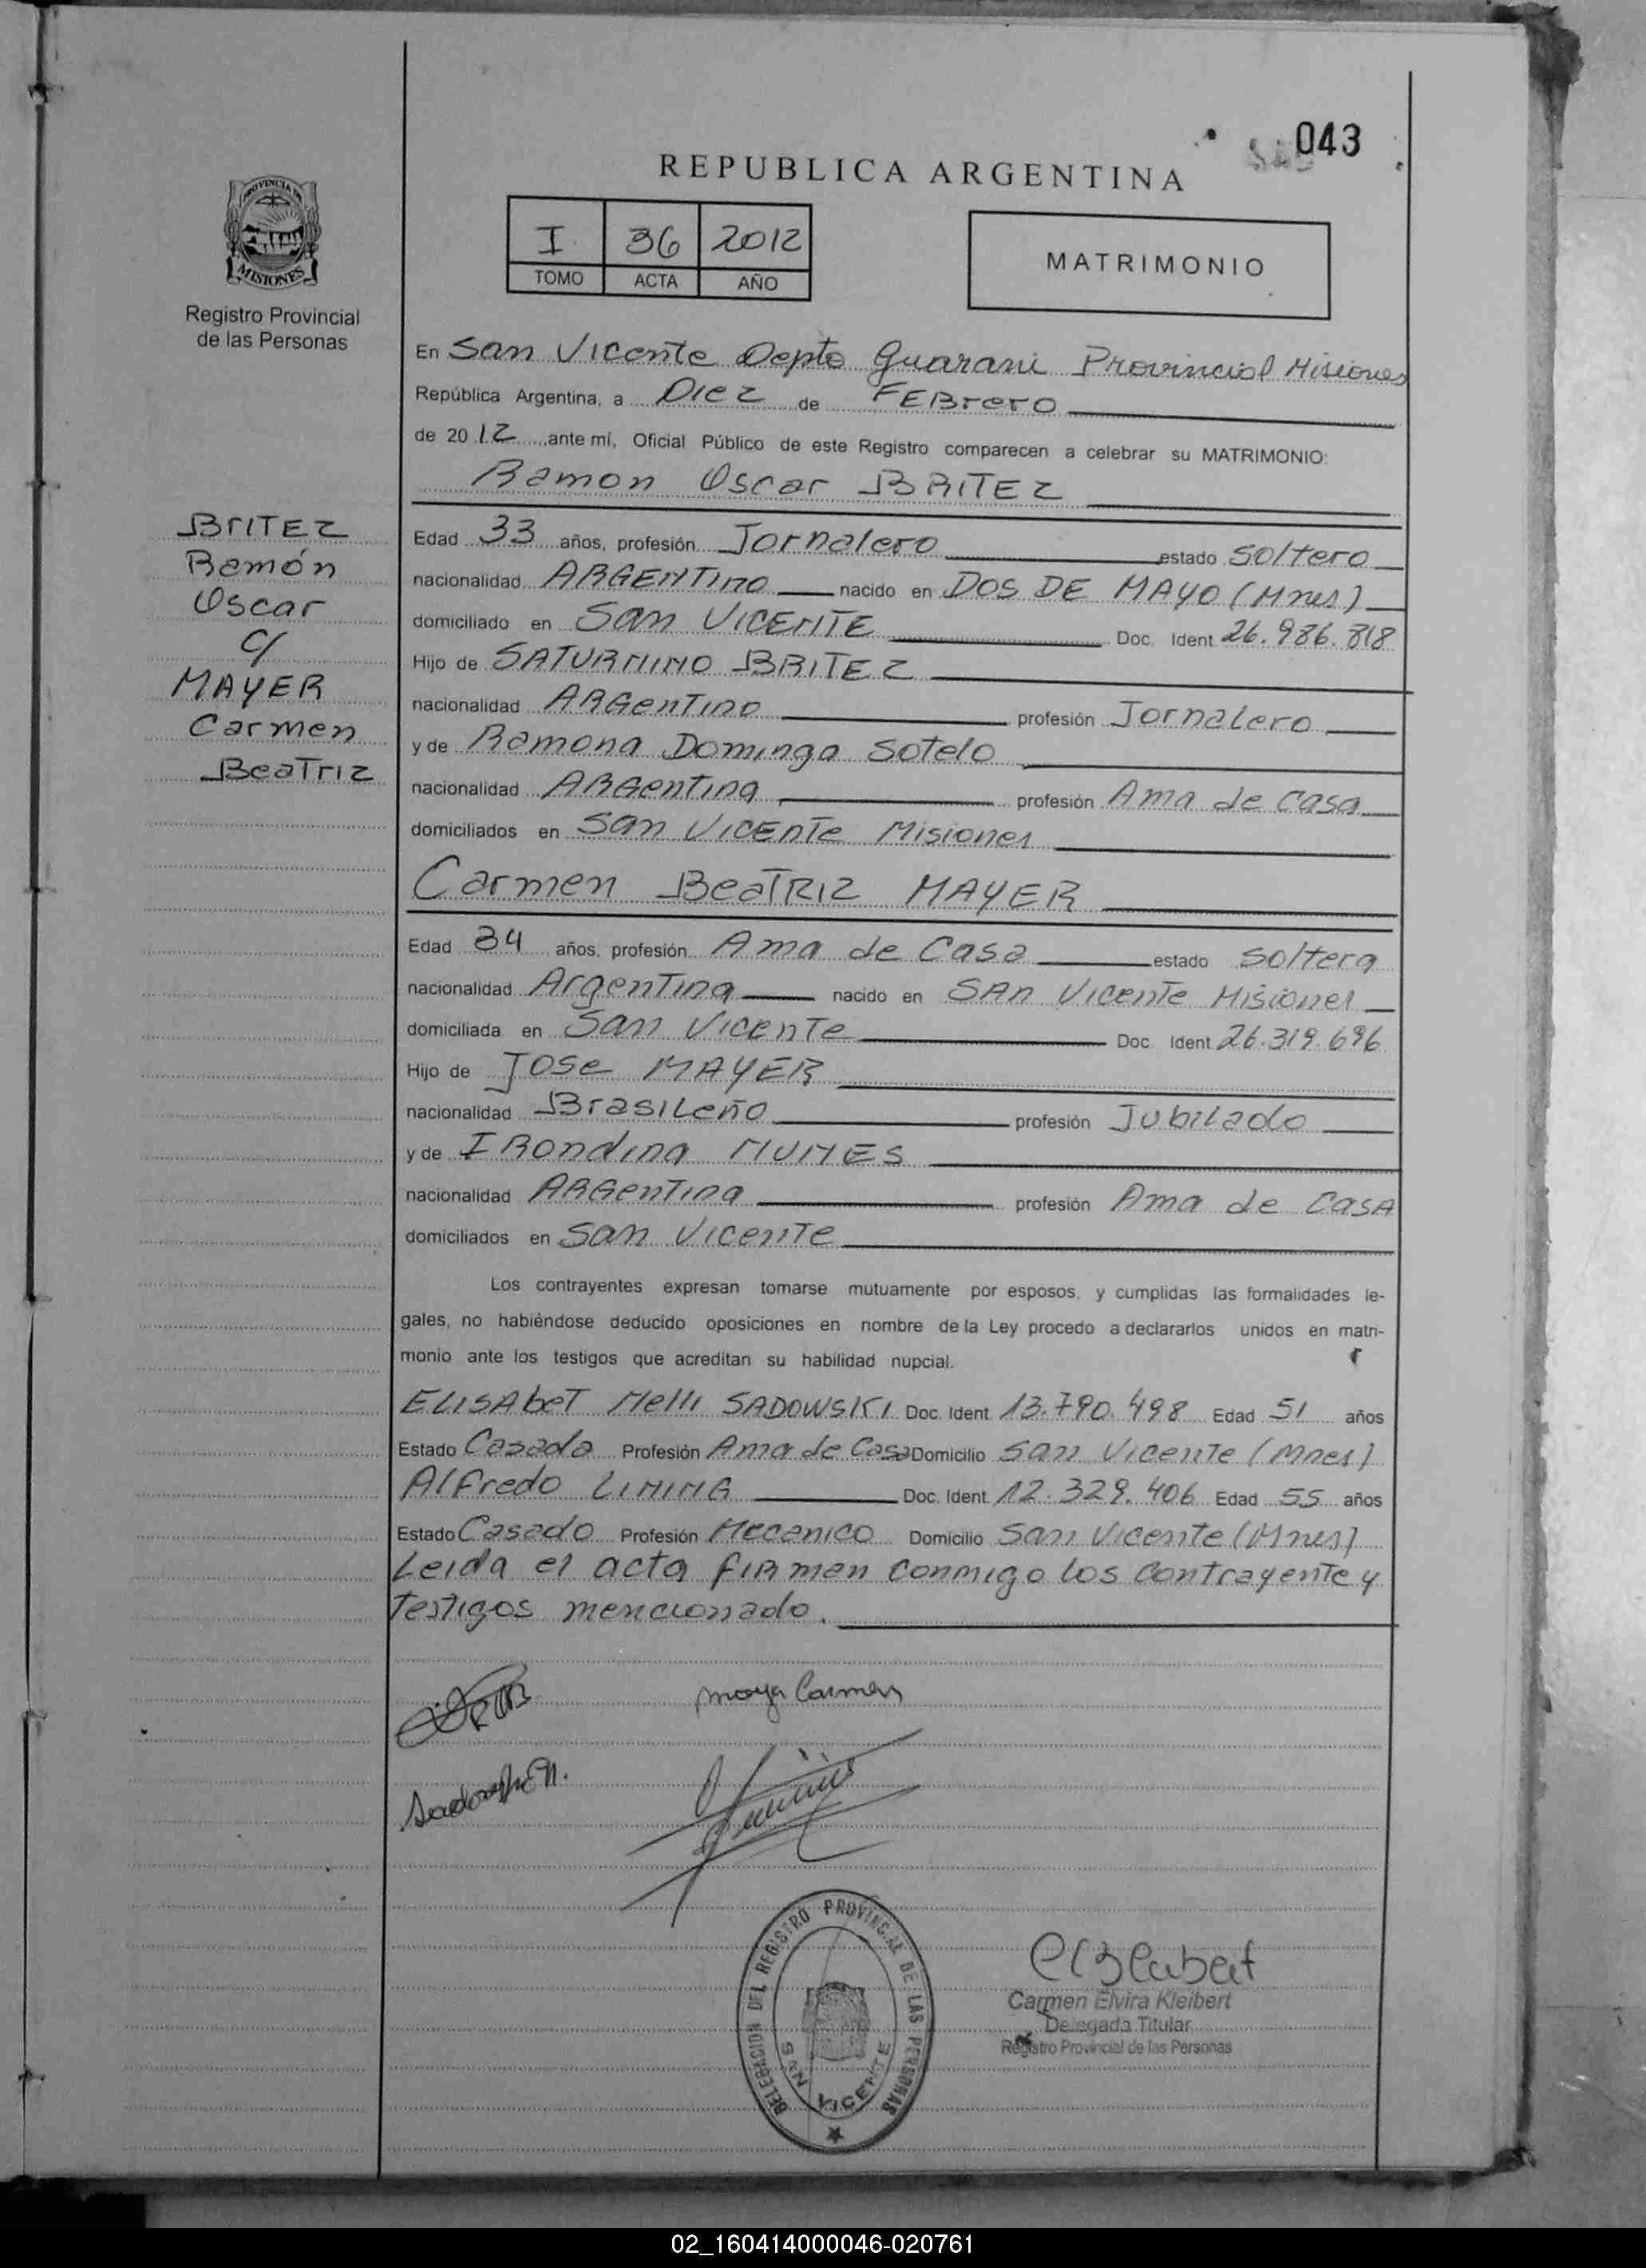 043
REPUBLICA ARGENTINA
I 36 2012
TOMO ACTA AÑO
MATRIMONIO
PROVINCIA DE
MISIONES
Registro Provincial
de las Personas
En San Vicente Depto Guarani Provincial Misiones
República Argentina, a Diez de FEBrero
de 2012 ante mí, Oficial Público de este Registro comparecen a celebrar su MATRIMONIO:
Ramon Oscar BRITEZ
BRITEZ
Ramón
Oscar
c/
MAYER
Carmen
Beatriz
Edad 33 años, profesión Jornalero estado soltero
nacionalidad ARGENTINO nacido en DOS DE MAYO (Mnes)
domiciliado en San VICENTE Doc. Ident 26.986.818
Hijo de SATURNINO BRITEZ
nacionalidad ARGENTINO profesión Jornalero
y de Ramona Dominga Sotelo
nacionalidad ARGENTINA profesión Ama de casa
domiciliados en San VICENTE Misiones
Carmen BeaTRIZ MAYER
Edad 34 años, profesión Ama de Casa estado soltera
nacionalidad Argentina nacido en SAn Vicente Misiones
domiciliada en San Vicente Doc. Ident 26.319.696
Hijo de JOSe MAYER
nacionalidad Brasileño profesión Jubilado
y de IRondina NUNES
nacionalidad ARGENTINA profesión Ama de CasA
domiciliados en San Vicente
Los contrayentes expresan tomarse mutuamente por esposos, y cumplidas las formalidades le-
gales, no habiéndose deducido oposiciones en nombre de la Ley procedo a declararlos unidos en matri-
monio ante los testigos que acreditan su habilidad nupcial.
ELISAbeT Nelli SADOWSKI Doc. Ident 13.790.498 Edad 51 años
Estado Casada Profesión Ama de Casa Domicilio San Vicente (Mnes)
Alfredo LINING Doc. Ident. 12.329.406 Edad 55 años
Estado Casado Profesión Mecanico Domicilio San Vicente (Mnes)
Leida el acta firman conmigo los contrayente y
Testigos mencionado.
Mayer Carmen
Sadowski E N.
DELEGACION DEL REGISTRO PROVINCIAL DE LAS PERSONAS
SAN VICENTE
Carmen Elvira Kleibert
Delegada Titular
Registro Provincial de las Personas
02_160414000046-020761